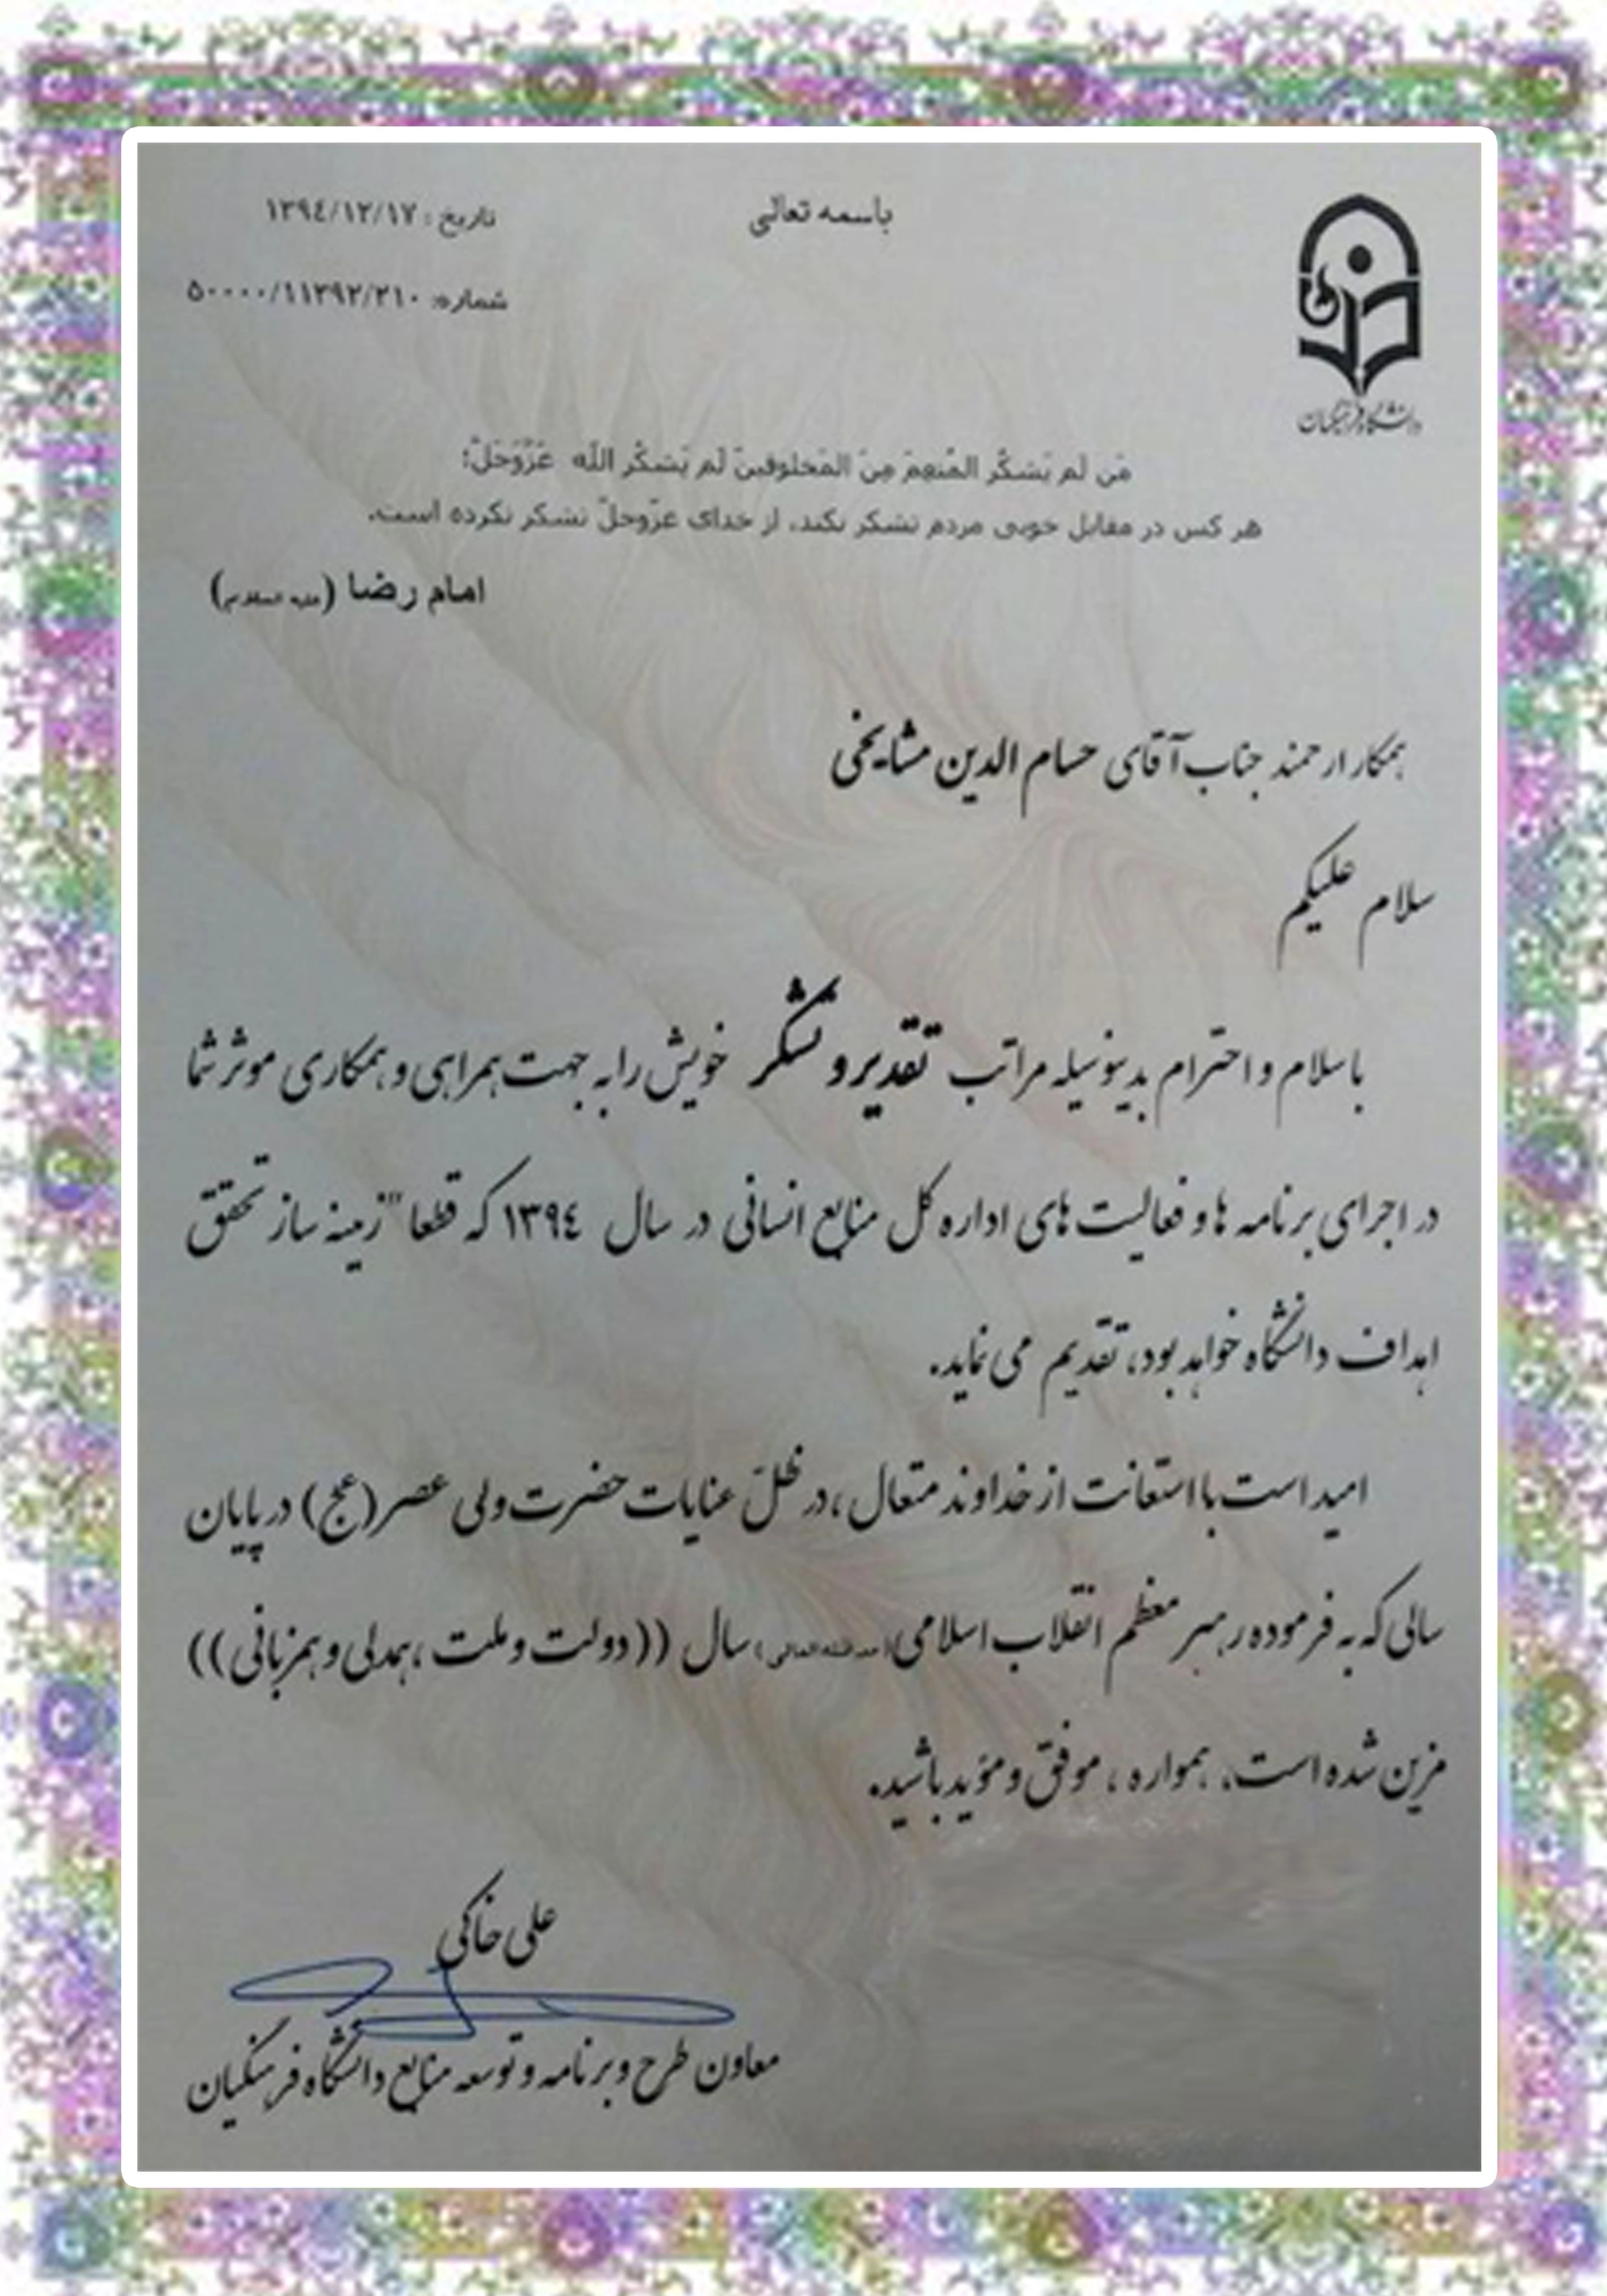 باسمه تعالی
تاریخ : ۱۳۹٤/۱۲/۱۷
شماره: ۵۰۰۰۰/۱۱۳۹۲/۲۱۰
دانشگاه فرهنگیان
مَن لَم یَشکُر المُنعِمَ مِنَ المَخلوقینَ لَم یَشکُرِ اللّه عَزَّوَجَلَّ؛
هر کس در مقابل خوبی مردم تشکر نکند، از خدای عزّوجلّ تشکر نکرده است.
امام رضا (علیه السلام)
همکار ارجمند جناب آقای حسام الدین مشایخی
سلام علیکم
با سلام و احترام بدینوسیله مراتب تقدیر و تشکر خویش را به جهت همراهی و همکاری موثر شما
در اجرای برنامه ها و فعالیت های اداره کل منابع انسانی در سال ۱۳۹٤ که قطعا" زمینه ساز تحقق
اهداف دانشگاه خواهد بود، تقدیم می نماید.
امید است با استعانت از خداوند متعال ، در ظلّ عنایات حضرت ولی عصر (عج) در پایان
سالی که به فرموده رهبر معظم انقلاب اسلامی (مد ظله العالی) سال ((دولت و ملت ، همدلی و همزبانی))
مزین شده است، همواره ، موفق و مؤید باشید.
علی خاکی
معاون طرح و برنامه و توسعه منابع دانشگاه فرهنگیان